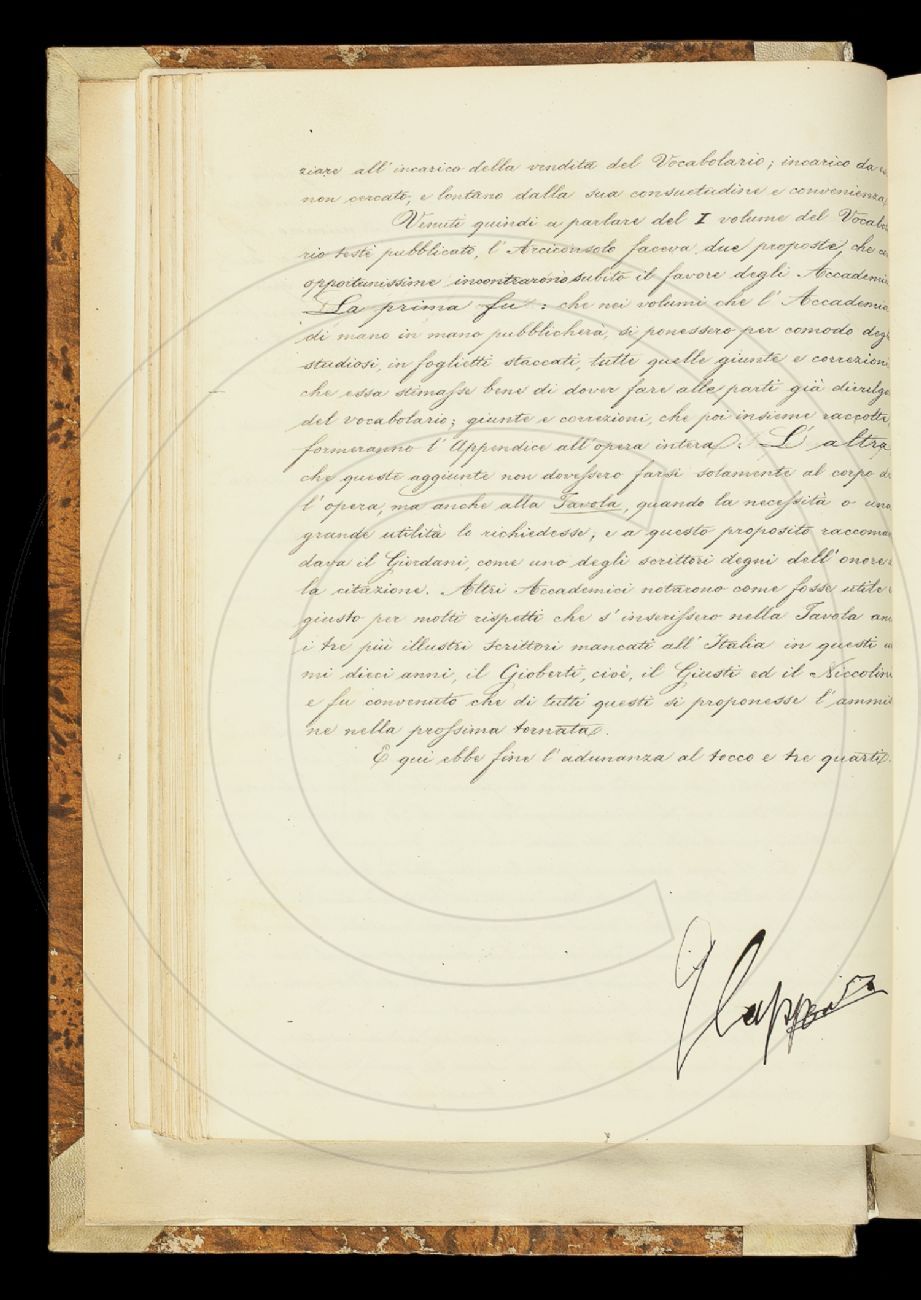 ziare all' incarico della vendita del Vocabolario; incarico da
non cercato, e lontano dalla sua consuetudine e convenienza
Venuti quindi a parlare del I volume del Vocabo
rio testè pubblicato, l' Arciconsolo faceva due proposte, che
opportunissime incontrarono subito il favore degli Accademi
La prima fu: che nei volumi che l' Accademia
di mano in mano pubblicherà, si ponessero per comodo deg
studiosi, in foglietti staccati, tutte quelle giunte e correzioni
che essa stimasse bene di dover fare alle parti già divulga
del vocabolario; giunte e correzioni, che poi insieme raccolte,
formeranno l' Appendice all' opera intera. L' altra
che queste aggiunte non dovessero farsi solamente al corpo de
l' opera, ma anche alla Tavola, quando la necessità o una
grande utilità le richiedesse; e a questo proposito raccoman
dava il Giordani, come uno degli scrittori degni dell' onore
la citazione. Altri Accademici notarono come fosse utile e
giusto per molti rispetti che s' inserissero nella Tavola an
i tre più illustri scrittori mancati all' Italia in questi u
mi dieci anni, il Gioberti, cioè, il Giusti ed il Niccolini
e fu convenuto che di tutti questi si proponesse l' ammi
ne nella prossima tornata.
E qui ebbe fine l' adunanza al tocco e tre quarti.